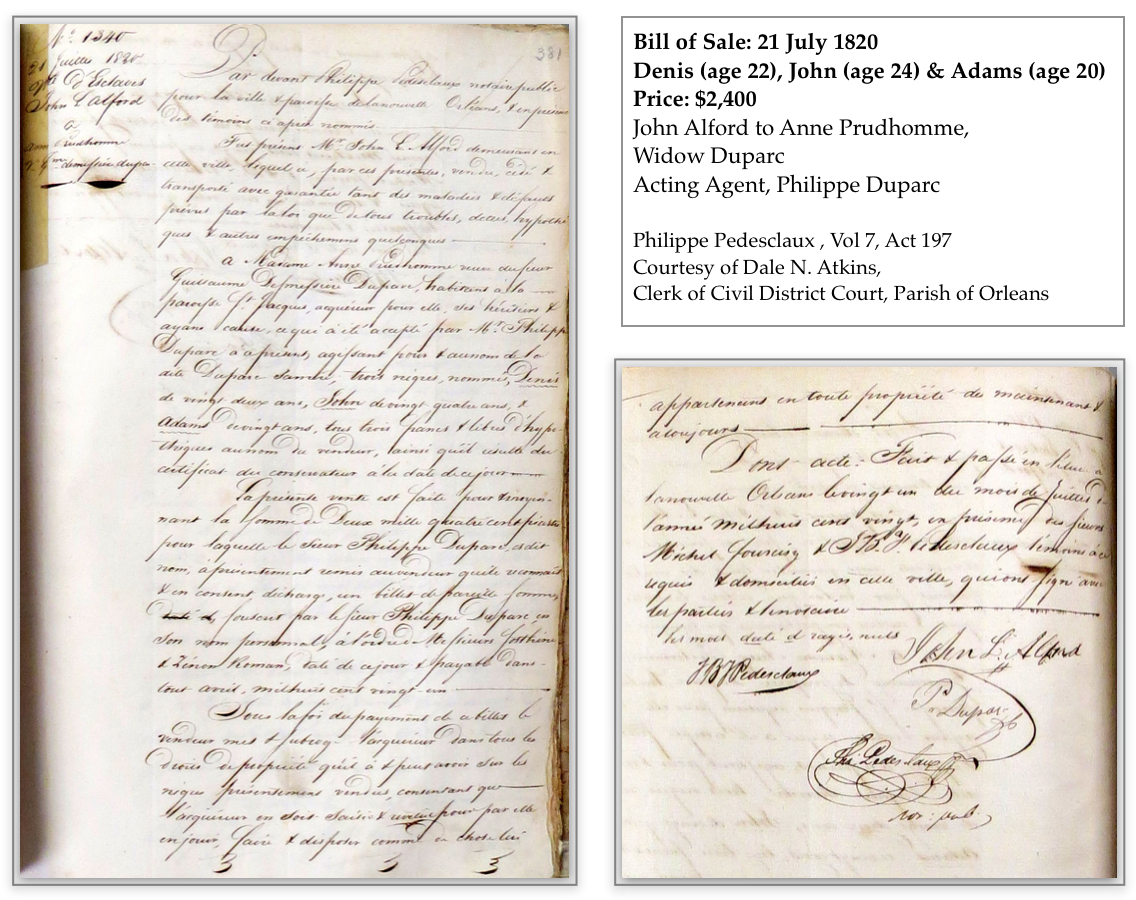 N.º 1340
21 Juillet 1820
Vte d'Esclaves
John L. Alford
a
Anne Prudhomme
Vve demessière dupa-
331
Par devant Philippe Pedesclaux notaire public
pour la ville & paroisse de lanouvelle Orléans, & en présence
des témoins ci après nommés
Fut présent Mr. John L. Alford demeurant en
cette ville, lequel a, par ces présentes, vendu, cédé &
transporté avec garantie tant des maladies & défauts
prévus par la loi que de tous troubles, dettes, hypothè
ques & autres empêchemens quelconques
à Madame Anne Prudhomme veuve du feu
Guillaume Demessière Duparc, habitante à la
paroisse St. Jacques, acquéreur pour elle, ses héritiers &
ayans cause, ce qui a été accepté par Mr. Philippe
Duparc à ce présent, agissant pour & au nom de la
dite Duparc sa mère, trois nègres, nommés, Denis
de vingt deux ans, John de vingt quatre ans, &
Adams de vingt ans, tous trois francs & libres d'hypo
thèques au nom du vendeur, ainsi qu'il résulte du
certificat du conservateur à la date de ce jour
La présente vente est faite pour & moyen-
nant la somme de Deux mille quatre cent piastres
pour laquelle le sieur Philippe Duparc, audit
nom, a présentement remis au vendeur qui le reconnait
& en consent décharge, un billet de pareille somme,
daté d, souscrit par le sieur Philippe Duparc en
son nom personnel, à l'ordre de Messieurs
& Zénon Roman, daté de ce jour & payable dans
tout avril, mil huit cent vingt un
Sous la foi du payement de ce billet le
vendeur met & subroge l'acquéreur dans tous les
droits de propriété qu'il a & peut avoir sur les
nègres présentement vendus, consentant que
l'acquéreur en soit saisie & vetue pour par elle
en jouir, faire & disposer comme de chose lui
3 3 3
Bill of Sale: 21 July 1820
Denis (age 22), John (age 24) & Adams (age 20)
Price: $2,400
John Alford to Anne Prudhomme,
Widow Duparc
Acting Agent, Philippe Duparc
Philippe Pedesclaux , Vol 7, Act 197
Courtesy of Dale N. Atkins,
Clerk of Civil District Court, Parish of Orleans
appartenans en toute propriété dès maintenant &
a toujours
Dont acte: Fait & passé en l'étude à
lanouvelle Orléans le vingt un du mois de Juillet de
l'année mil huit cent vingt, en présence des sieurs
Michel Fourcisy & J. B. F. Pedesclaux témoins à ce
requis & domiciliés en cette ville, qui ont signé avec
les parties & le notaire
les mots daté d rayés, nuls
John L. Alford
J B F Pedesclaux
P. Duparc
Phi. Pedesclaux
not: pub.